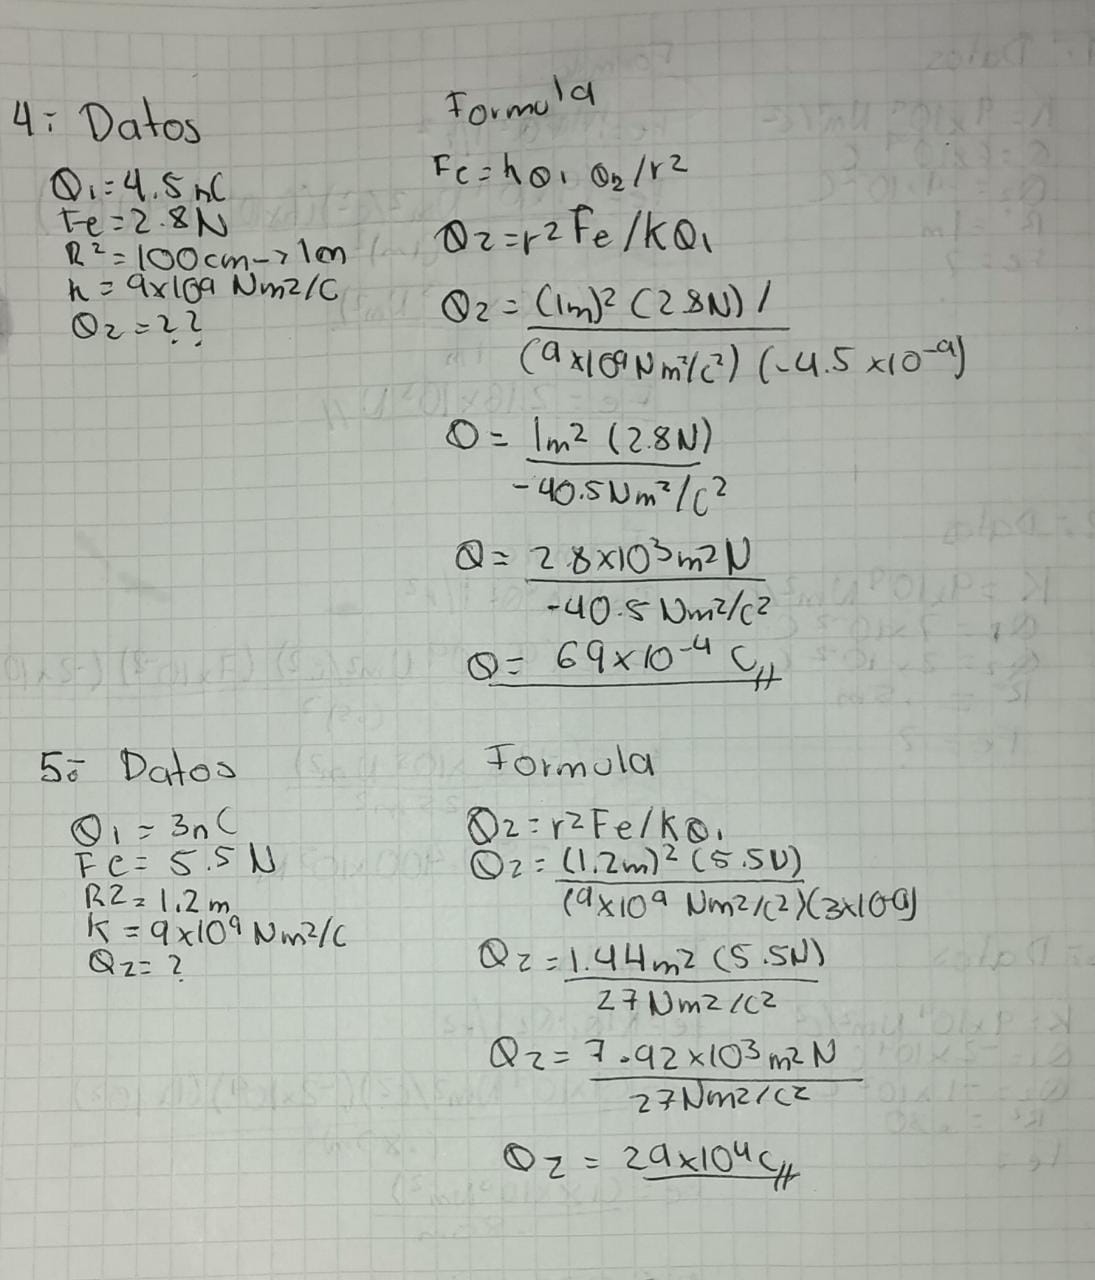 4: Datos
Q1=4.5nC
Fe=2.8N
R²=100cm->1m
K=9x109 Nm2/C
Q2=??
Formula
Fe=kQ1 Q2/r²
Q2=r²Fe/KQ1
Q2=(1m)² (2.8N)/
(9x10⁹Nm²/c²) (-4.5x10⁻⁹)
Q=1m² (2.8N)
-40.5Nm²/C²
Q=2.8x10³m2N
-40.5 Nm2/c²
Q= 69x10⁻⁴ C
5: Datos
Q1=3nC
Fe=5.5N
R2=1.2m
K=9x10⁹Nm2/C
Q2=?
Formula
Q2=r2Fe/KQ1
Q2=(1.2m)² (5.5N)
(9x10⁹ Nm2/c2)(3x10-9)
Q2=1.44m2 (5.5N)
27Nm2/c2
Q2=7.92x10³m2N
27Nm2/c2
Q2=29x10⁴C